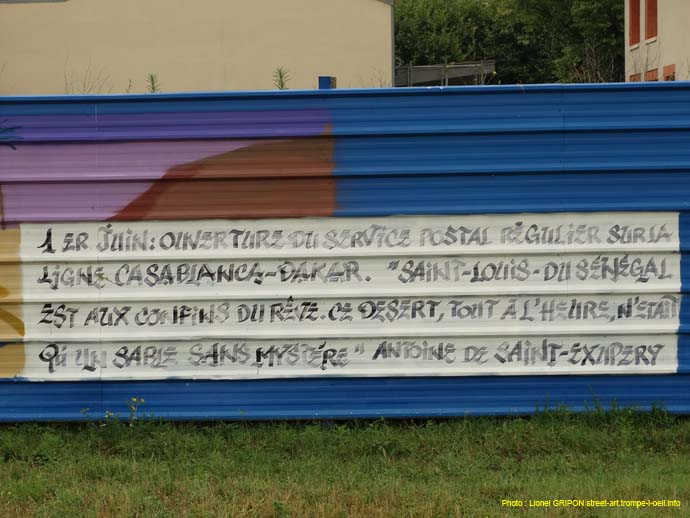 1 ER JUIN: OUVERTURE DU SERVICE POSTAL RÉGULIER SUR LA
LIGNE CASABLANCA-DAKAR. "SAINT-LOUIS-DU SÉNÉGAL
EST AUX CONFINS DU RÊVE. CE DESERT, TOUT À L'HEURE, N'ÉTAIT
QU'UN SABLE SANS MYSTÉRE" ANTOINE DE SAINT-EXUPERY
Photo : Lionel GRIPON street-art.trompe-l-oeil.info